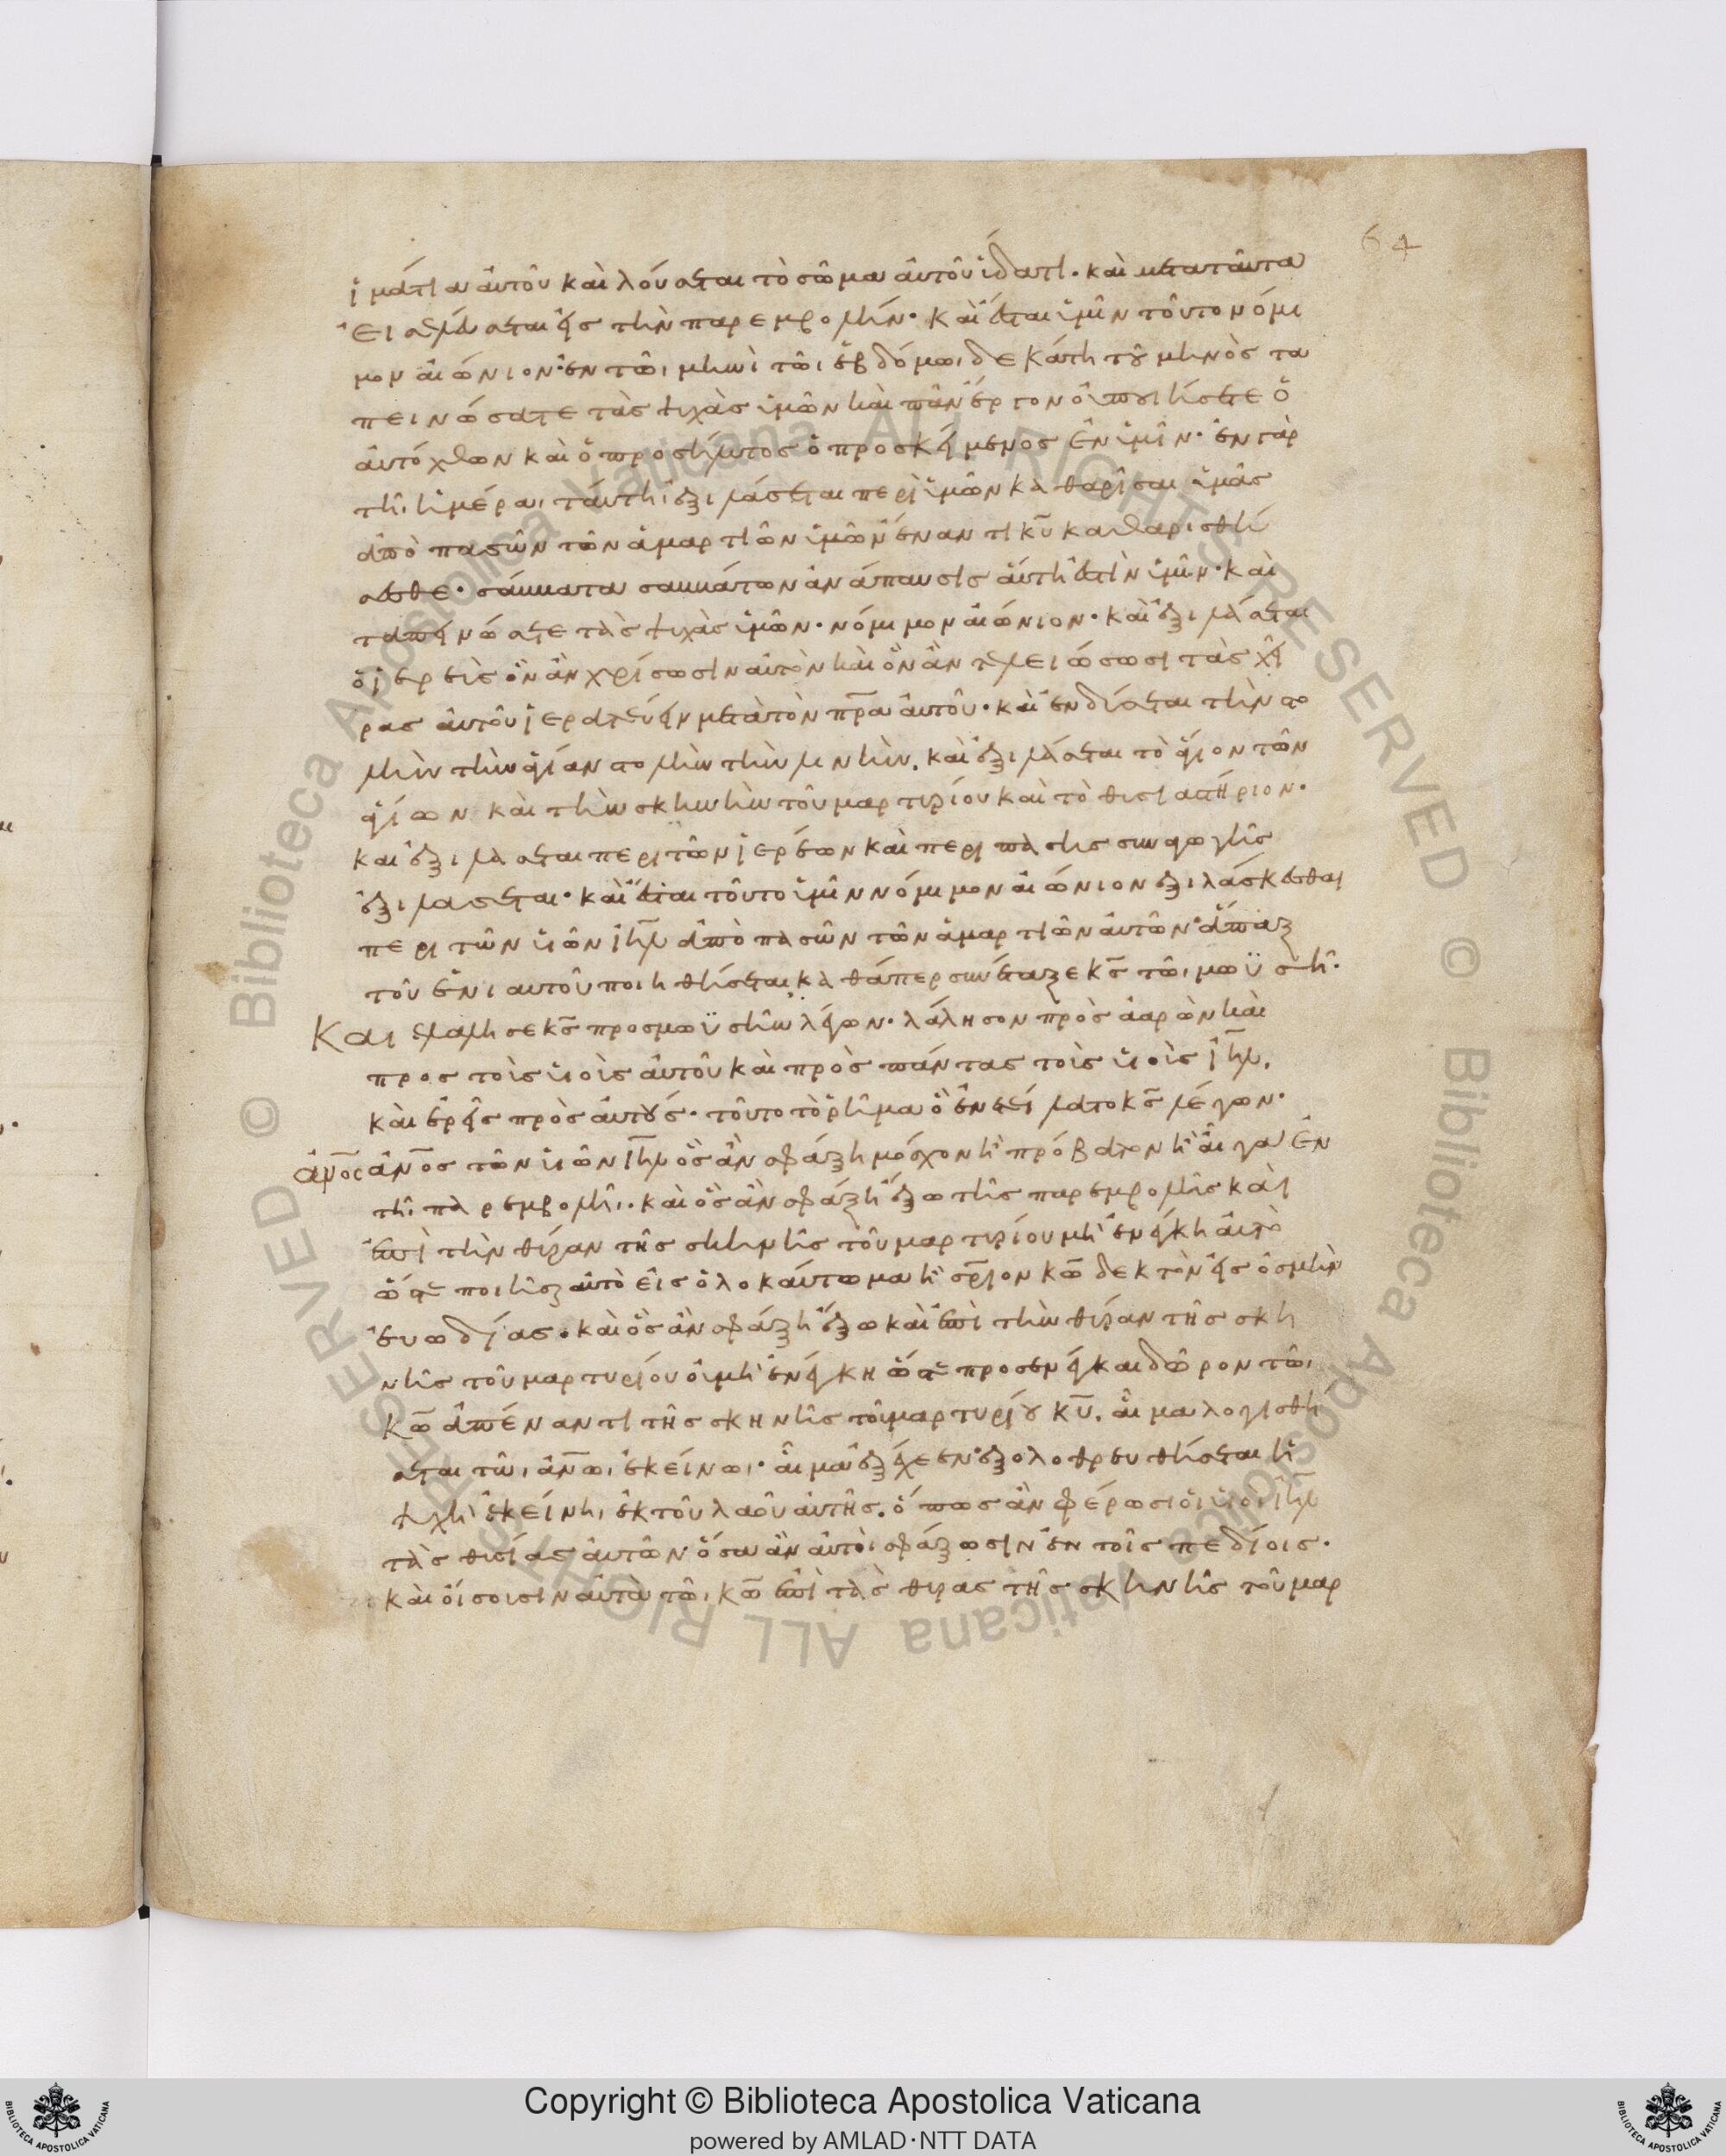 64
ἱμάτια αὐτοῦ καὶ λούσεται τὸ σῶμα αὐτοῦ ὕδατι· καὶ μετα ταῦτα
εἰσελεύσεται εἰς τὴν παρεμβολήν· καὶ ἔσται ὑμῖν τοῦτο νόμι
μον αἰώνιον· ἐν τῶι μηνὶ τῶι ἑβδόμωι δεκάτη τοῦ μηνὸς τα
πεινώσατε τὰς ψυχὰς ὑμῶν καὶ πᾶν ἔργον οὐ ποιήσετε ὁ
αὐτόχθων καὶ ὁ προσήλυτος ὁ προσκείμενος ἐν ὑμῖν· ἐν γὰρ
τῆι ἡμέραι ταύτη ἐξιλάσεται περὶ ὑμῶν καθαρίσαι ὑμᾶς
ἀπὸ πασῶν τῶν ἁμαρτιῶν ὑμῶν ἔναντι κυ καθαρισθή
σεσθε· σάββατα σαββάτων ἀνάπαυσις αὕτη ἐστὶν ὑμῖν· καὶ
ταπεινώσατε τὰς ψυχὰς ὑμῶν· νόμιμον αἰώνιον· καὶ ἐξιλάσεται
ὁ ἱερεὺς ὃν ἂν χρίσωσιν αὐτὸν καὶ ὃν ἂν τελειώσωσι τὰς χεῖ
ρας αὐτοῦ ἱερατεύειν μετὰ τὸν πρα αὐτοῦ· καὶ ἐνδύσεται τὴν στο
λὴν τὴν ἁγίαν στολὴν τὴν λινήν. καὶ ἐξιλάσεται τὸ ἅγιον τῶν
ἁγίων καὶ τὴν σκηνὴν τοῦ μαρτυρίου καὶ τὸ θυσιαστήριον·
καὶ ἐξιλάσεται περὶ τῶν ἱερέων καὶ περι πάσης συναγωγῆς
ἐξιλάσεται· καὶ ἔσται τοῦτο ὑμῖν νόμιμον αἰώνιον ἐξιλάσκεσθαι
περι τῶν υἱῶν ιηλ ἀπὸ πασῶν τῶν ἁμαρτιῶν αὐτῶν· ἅπαξ
τοῦ ἐνιαυτοῦ ποιηθήσεται καθάπερ συνέταξε κς τῶι μωϋσῆ·
Και ἐλάλησε κς προς μωϋσῆν λέγων· λάλησον πρὸς ἀαρὼν καὶ
προς τοὺς υἱοὺς αὐτοῦ καὶ πρὸς πάντας τοὺς υἱοὺς ιηλ.
καὶ ἐρεῖς πρὸς αὐτούς· τοῦτο τὸ ῥῆμα ὃ ἐνετείλατο κς λέγων·
ἀνος ἀνος τῶν υἱῶν ιηλ ὃς ἂν σφάξη μόσχον ἢ πρόβατον ἢ αἶγα ἐν
τῆι παρεμβολῆι· καὶ ὃς ἂν σφάξη ἔξω τῆς παρεμβολῆς καὶ
ἐπὶ τὴν θύραν τῆς σκηνῆς τοῦ μαρτυρίου μὴ ἐνέγκη αὐτὸ
ὥστε ποιῆσαι αὐτὸ εἰς ὁλοκαύτωμα ἢ σριον κω δεκτὸν εἰς ὀσμὴν
εὐωδίας· καὶ ὃς ἂν σφάξη ἔξω καὶ ἐπὶ τὴν θύραν τῆς σκη
νῆς τοῦ μαρτυρίου οὐ μὴ ἐνέγκη ὥστε προσενέγκαι δῶρον τῶι
κω ἀπέναντι τῆς σκηνῆς τοῦ μαρτυρίου κυ. αἷμα λογισθή
σεται τῶι ἀνωι ἐκείνωι· αἷμα ἐξέχεεν ἐξολοθρευθήσεται ἡ
ψυχὴ ἐκείνηι ἐκ τοῦ λαοῦ αὐτῆς. ὅπως ἂν φέρωσι οἱ υἱοι ιηλ
τὰς θυσίας αὐτῶν ὅσα ἂν αὐτοὶ σφάξωσιν ἐν τοῖς πεδίοις·
καὶ οἴσουσιν αὐτὰ τῶι κω ἐπὶ τὰς θύρας τῆς σκηνῆς τοῦ μαρ
© Biblioteca Apostolica Vaticana ALL RIGHTS RESERVED
© Biblioteca Apostolica Vaticana ALL RIGHTS RESERVED
Copyright © Biblioteca Apostolica Vaticana
powered by AMLAD·NTT DATA
BIBLIOTECA APOSTOLICA VATICANA
BIBLIOTECA APOSTOLICA VATICANA